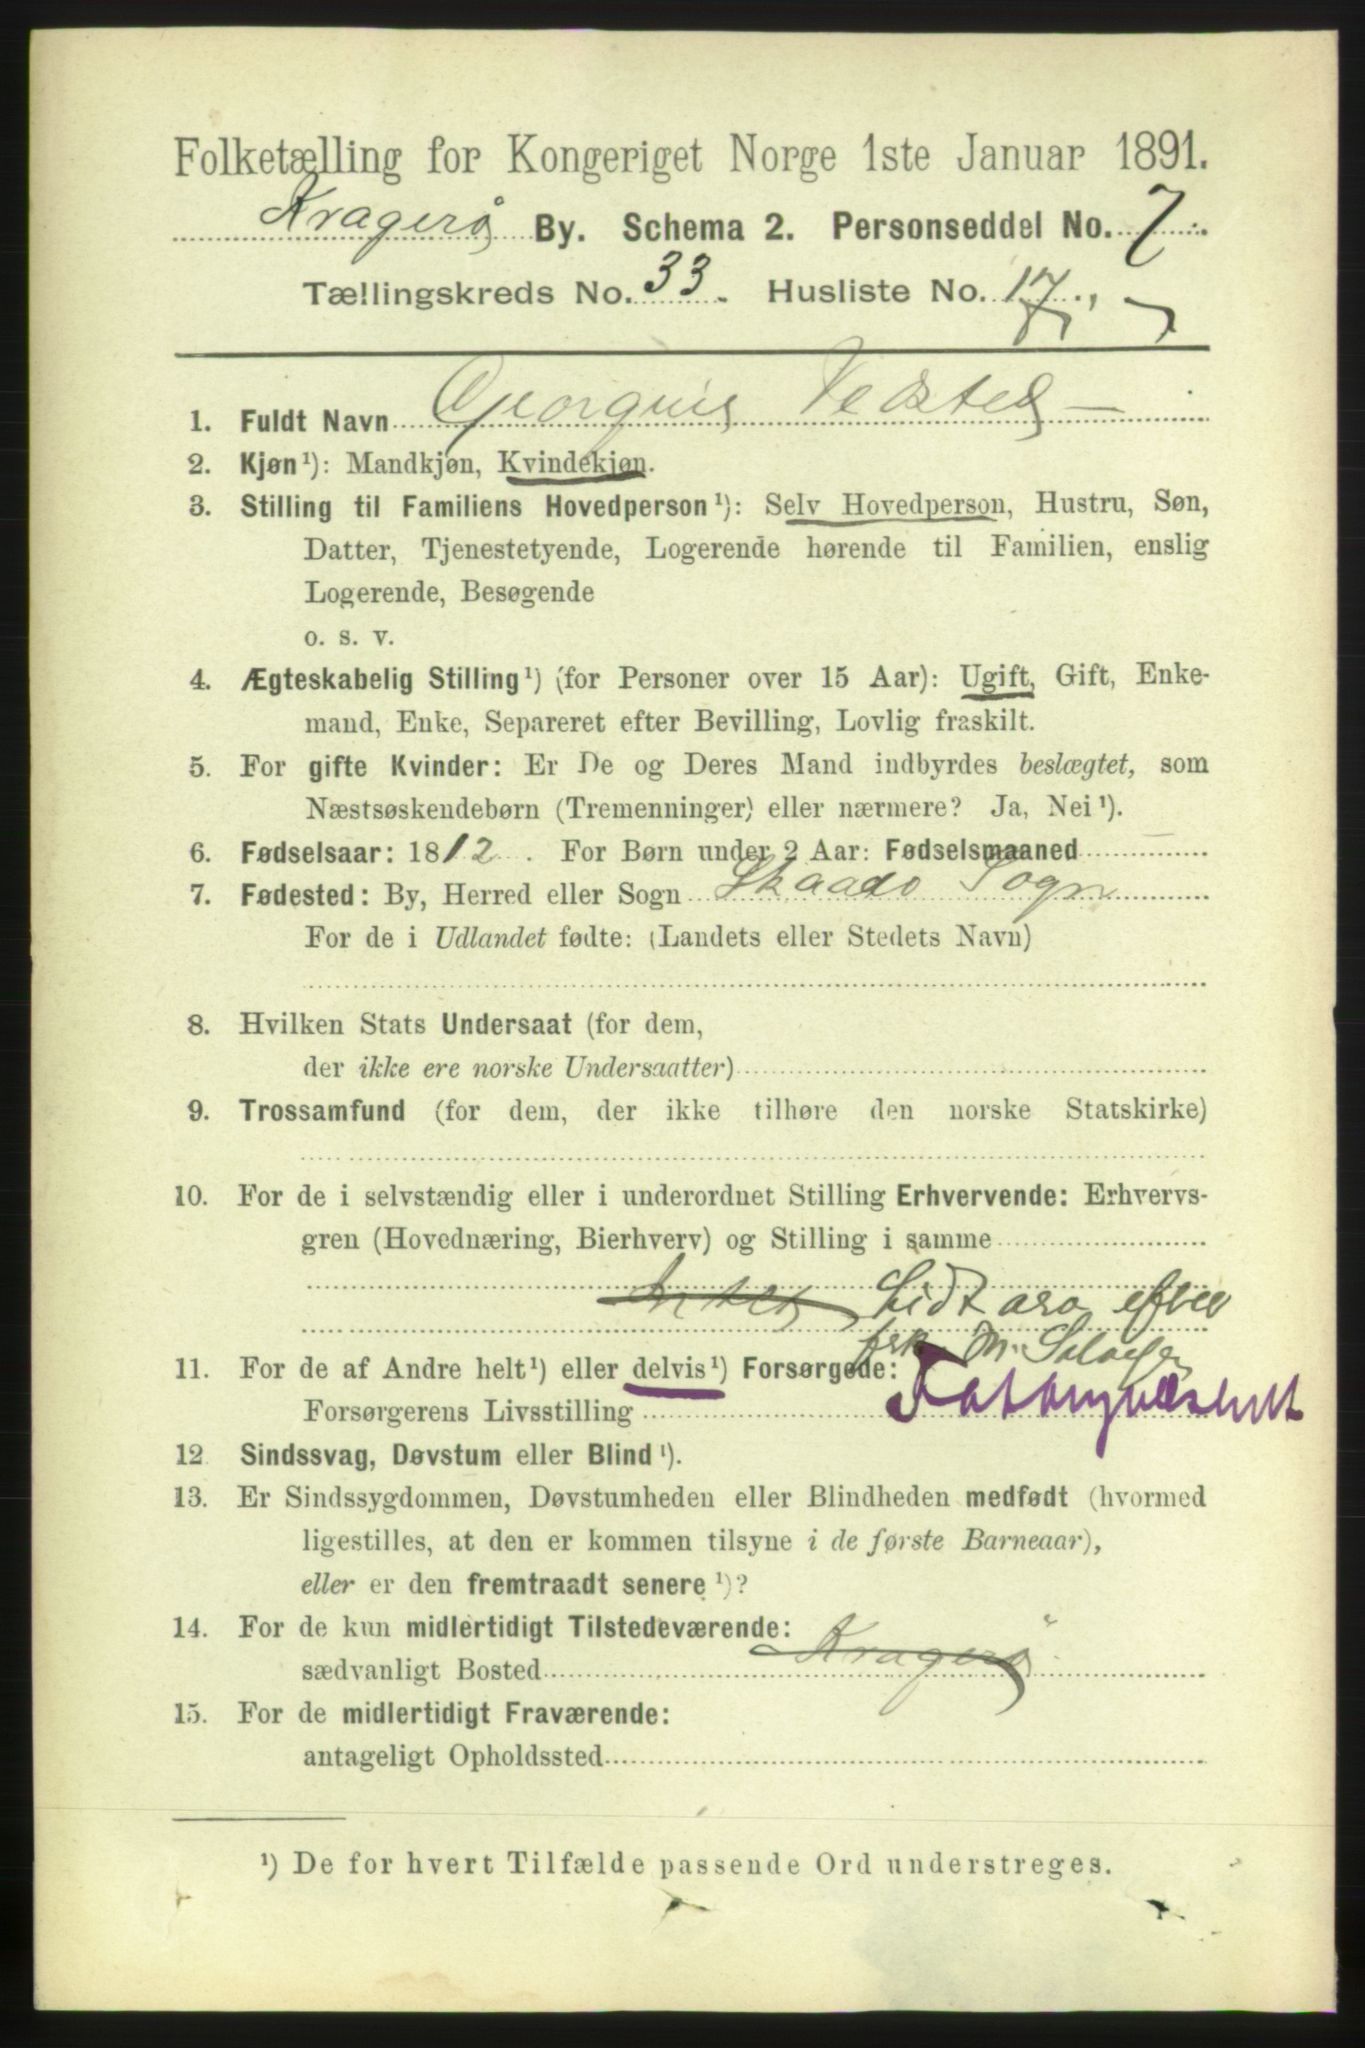 Folketælling for Kongeriget Norge 1ste Januar 1891.
Kragerø By. Schema 2. Personseddel No. 7
Tællingskreds No. 33. Husliste No. 17.
1. Fuldt Navn
2. Kjøn ¹): Mandkjøn, Kvindekjøn.
3. Stilling til Familiens Hovedperson ¹): Selv Hovedperson, Hustru, Søn,
Datter, Tjenestetyende, Logerende hørende til Familien, enslig
Logerende, Besøgende
o. s. v.
4. Ægteskabelig Stilling ¹) (for Personer over 15 Aar): Ugift, Gift, Enke-
mand, Enke, Separeret efter Bevilling, Lovlig fraskilt.
5. For gifte Kvinder: Er De og Deres Mand indbyrdes beslægtet, som
Næstsøskendebørn (Tremenninger) eller nærmere? Ja, Nei ¹).
6. Fødselsaar: 1812. For Børn under 2 Aar: Fødselsmaaned
7. Fødested: By, Herred eller Sogn Skaadø Sogn
For de i Udlandet fødte: (Landets eller Stedets Navn)
8. Hvilken Stats Undersaat (for dem,
der ikke ere norske Undersaatter)
9. Trossamfund (for dem, der ikke tilhøre den norske Statskirke)
10. For de i selvstændig eller i underordnet Stilling Erhvervende: Erhvervs-
gren (Hovednæring, Bierhverv) og Stilling i samme
Lidt arv efter
frk. M.
11. For de af Andre helt ¹) eller delvis ¹) Forsørgede:
Forsørgerens Livsstilling
12. Sindssvag, Døvstum eller Blind ¹).
13. Er Sindssygdommen, Døvstumheden eller Blindheden medfødt (hvormed
ligestilles, at den er kommen tilsyne i de første Barneaar),
eller er den fremtraadt senere ¹)?
14. For de kun midlertidigt Tilstedeværende:
sædvanligt Bosted Kragerø
15. For de midlertidigt Fraværende:
antageligt Opholdssted
¹) De for hvert Tilfælde passende Ord understreges.